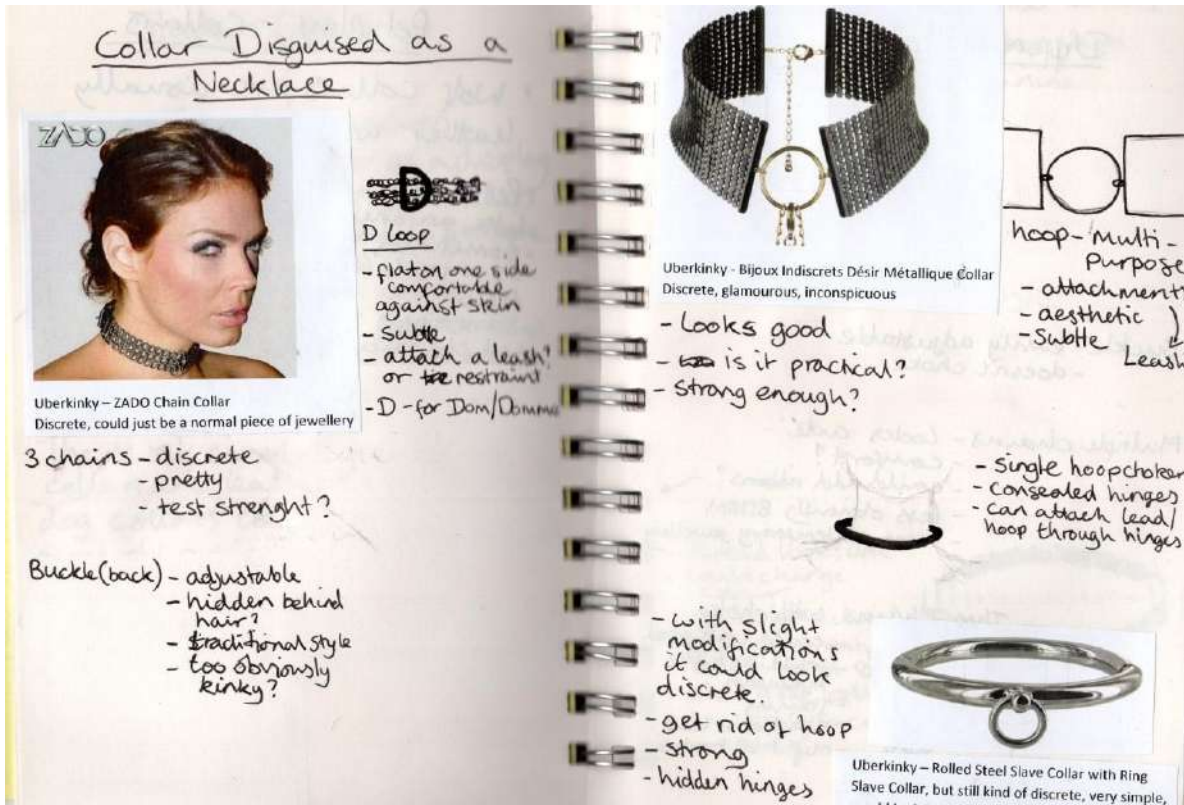 Collar Disguised as a
Necklace
ZADO
D loop
- flat on one side
comfortable
against skin
- subtle
- attach a leash?
or restraint
- D - for Dom/Domme
Uberkinky – ZADO Chain Collar
Discrete, could just be a normal piece of jewellery
3 chains - discrete
- pretty
- test strenght?
Buckle (back) - adjustable
- hidden behind
hair?
- traditional style
- too obviously
kinky?
Uberkinky - Bijoux Indiscrets Désir Métallique Collar
Discrete, glamourous, inconspicuous
- Looks good
- is it practical?
- strong enough?
hoop - multi -
Purpose
- attachment
- aesthetic
- Subtle
Leash
- single hoop choker
- consealed hinges
- can attach lead/
hoop through hinges
- with slight
modifications
it could look
discrete.
- get rid of hoop
- strong
- hidden hinges
Uberkinky – Rolled Steel Slave Collar with Ring
Slave Collar, but still kind of discrete, very simple,